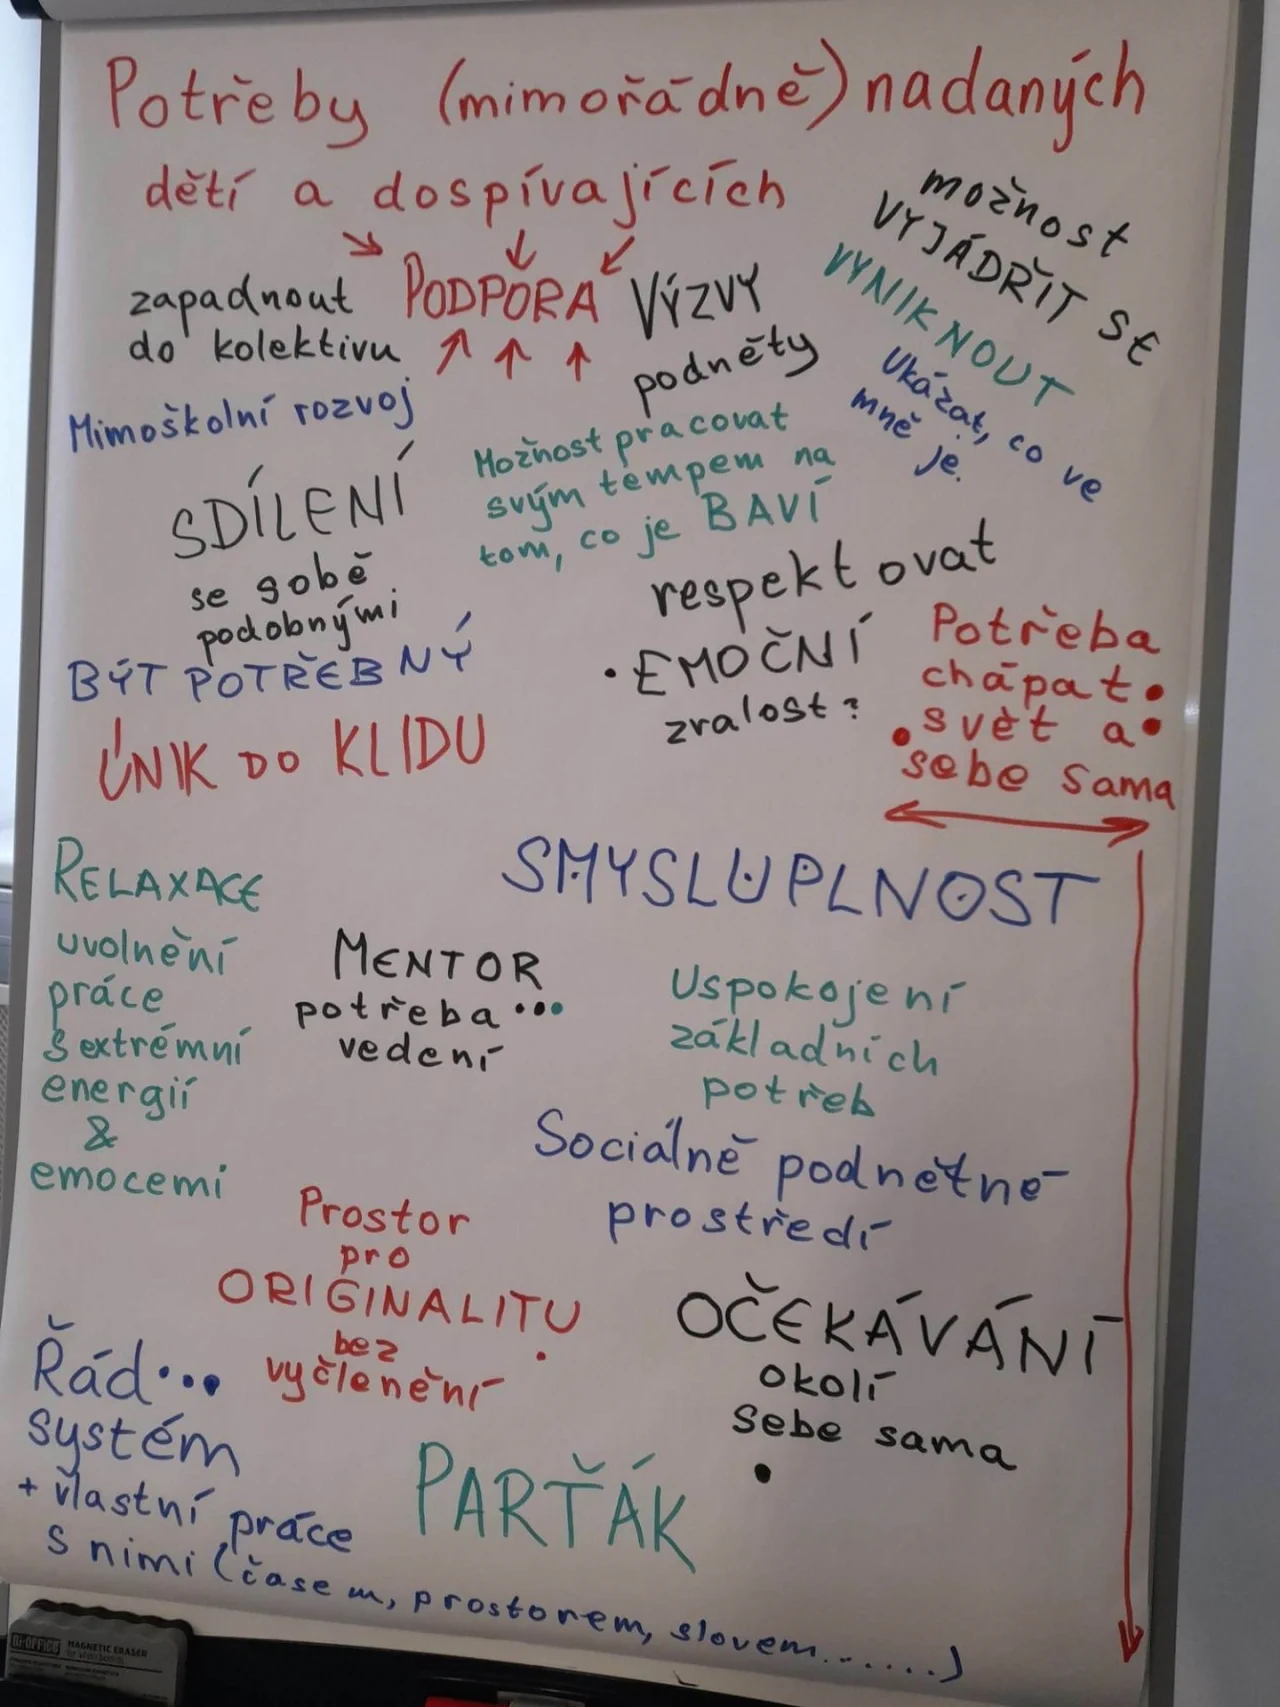 Potřeby (mimořádně) nadaných
dětí a dospívajících
možnost
VYJÁDŘIT SE
VYNIKNOUT
Ukázat, co ve
mně je.
zapadnout
do kolektivu
PODPORA
VÝZVY
podněty
Mimoškolní rozvoj
Možnost pracovat
svým tempem na
tom, co je BAVÍ
SDÍLENÍ
se sobě
podobnými
respektovat
• EMOČNÍ
zralost?
BÝT POTŘEBNÝ
Potřeba
chápat
svět a
sebe sama
ÚNIK DO KLIDU
SMYSLUPLNOST
RELAXACE
uvolnění
práce
s extrémní
energií
&
emocemi
MENTOR
potřeba...
vedení
Uspokojení
základních
potřeb
Sociálně podnětné
prostředí
Prostor
pro
ORIGINALITU
bez
vyčlenění
OČEKÁVÁNÍ
okolí
sebe sama
Řád...
systém
+ vlastní práce
s nimi (časem, prostorem, slovem.......)
PARŤÁK
Bi-OFFICE
MAGNETIC ERASER